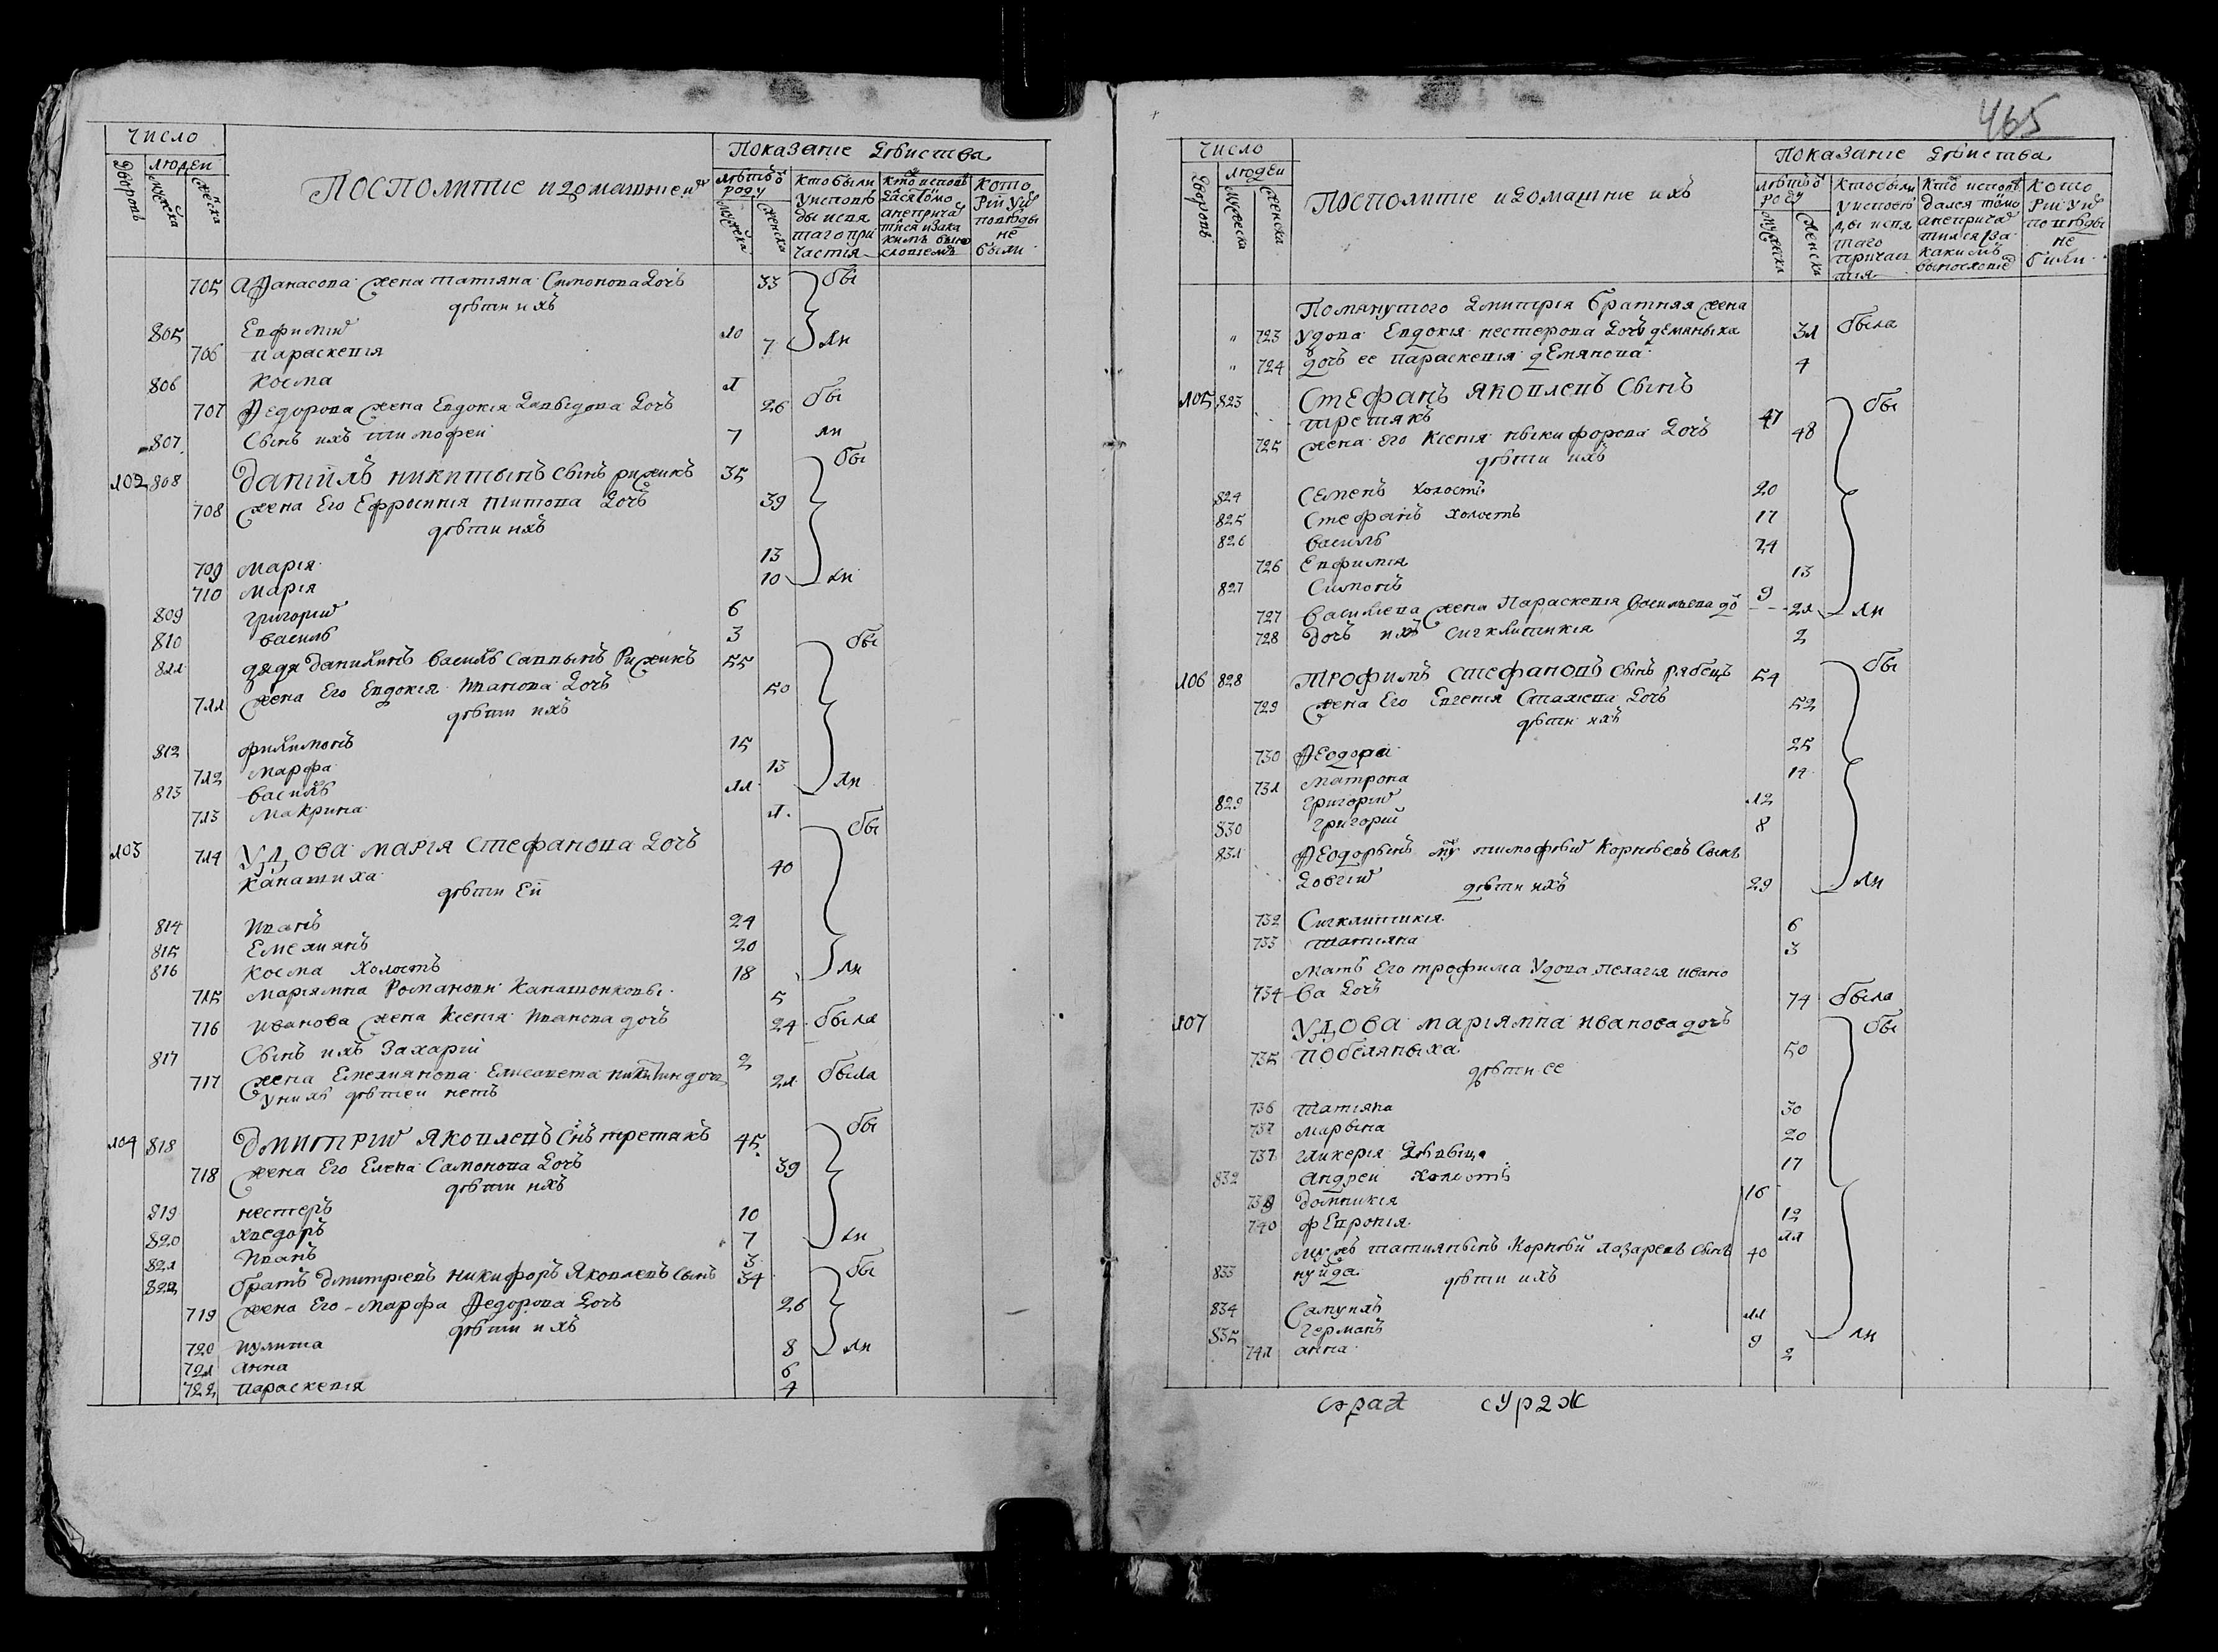 Число
Показание Дѣиства
дворовъ
людей
мужеска
женска
Посполитие и домашние ихъ
лѣтъ ѿ роду
мужеска
женска
кто были
у исповѣ
ды и свя
таго при
частия
Кто исповѣ
дался токмо
а не прича
тился и за ка
кимъ вино
словиемъ
Кото
рии у ис
повѣды
не
были
705 Афанасова жена татиана Симонова дочь 33 бы
дѣти ихъ
805 Евфимій 10
706 параскевия 7 ли
806 косма 1
707 Федорова жена Евдокия давыдова дочь 26 бы
807 Сынъ ихъ тимофеи 7 ли
102 808 данiилъ никитинъ сынъ рижикъ 35 бы
708 жена Его Ефросиния титова дочь 39
дѣти ихъ
709 мария 13
710 мария 10 ли
809 григорій 6
810 василь 3
811 дядя данилинъ василь саввинъ Рижикъ 55 бы
711 жена Его Евдокия иванова дочь 50
дѣти ихъ
812 филимонъ 15
712 марфа 13
813 василь 11 ли
713 макрина 1
103 714 удова мария стефанова дочь бы
канашиха 40
дѣти Еи
814 иванъ 24
815 Емелиянъ 20
816 косма холостъ 18 ли
715 мариямна Романови канашонкови 5
716 иванова жена ксения иванова дочь 24 была
817 Сынъ ихъ Захарій 2
717 жена Емелиянова Елисавета никитин дочь 21 была
у нихъ дѣтеи нетъ
104 818 дмитрій яковлевъ снъ третякъ 45 бы
718 жена Его Елена Самонова дочь 39
дѣти ихъ
819 нестеръ 10
820 хведоръ 7 ли
821 иванъ 3
822 братъ дмитриевъ никифоръ яковлевъ сынъ 34 бы
719 жена Его марфа Федорова дочь 26
дѣти ихъ
720 иулита 8 ли
721 анна 6
722 параскевия 4
465
Число
Показание Дѣиства
дворовъ
людеи
мужеска
женска
Посполитие и домашние ихъ
лѣтъ ѿ
роду
мужеска
женска
Кто были
у исповѣ
ды и свя
таго
причас
тия
Кто исповѣ
дался токмо
а не прича
тился и за
какимъ
винословиемъ
Кото
рии у ис
повѣды
не
были
Помянутого дмитрия братняя жена
" 723 удова Евдокия нестерова дочь демяниха 31 была
" 724 дочь ее параскевия демянова 4
105 823 Стефанъ яковлевъ сынъ бы
третякъ 47
725 жена его ксения никифорова дочь 48
дѣти ихъ
824 Семенъ холостъ 20
825 Стефанъ холостъ 17
826 василь 24
726 Евфимия 13
827 Симонъ 9
727 василева жена Параскевия васильева до 21 ли
728 дочь ихъ сигклитикия 2
106 828 трофимъ стефановъ сынъ рябецъ 54 бы
729 жена Его Евгения Стахиева дочь 52
дѣти ихъ
730 Феодора 25
731 матрона 14
829 Григорій 12
830 григорій 8
831 Феодоринъ му тимофѣй корнѣевъ сынъ
довгій дѣти ихъ 29 ли
732 Сигклитикия 6
733 татияна 3
мать его трофима удова пелагия ивано
734 ва дочь 74 была
107 удова мариямна иванова дочь бы
735 побеляниха 50
дѣти ее
736 татияна 30
737 марина 20
737 гликерия дѣвица 17
832 андреи холостъ 16
739 домникия 12
740 феврония 11
мужъ татиянинъ корнѣй лазаревъ сынъ 40
833 нуйда дѣти ихъ
834 Самуилъ 11
835 германъ 9 ли
741 анна 2